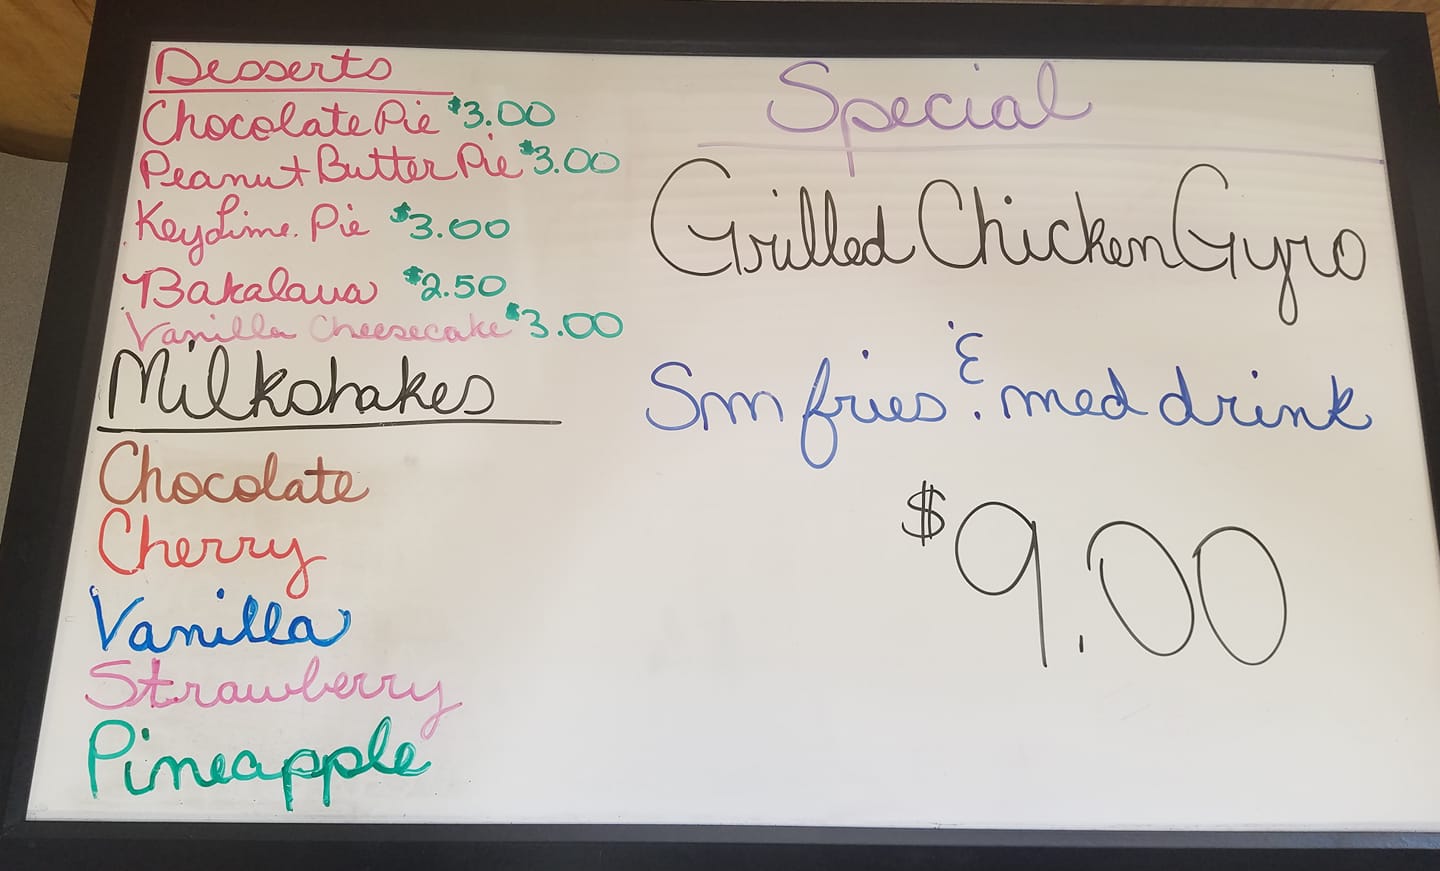 Desserts
Chocolate Pie $3.00
Peanut Butter Pie $3.00
Key Lime Pie $3.00
Bakalava $2.50
Vanilla Cheesecake $3.00
Milkshakes
Chocolate
Cherry
Vanilla
Strawberry
Pineapple
Special
Grilled Chicken Gyro
Sm fries & med drink
$9.00